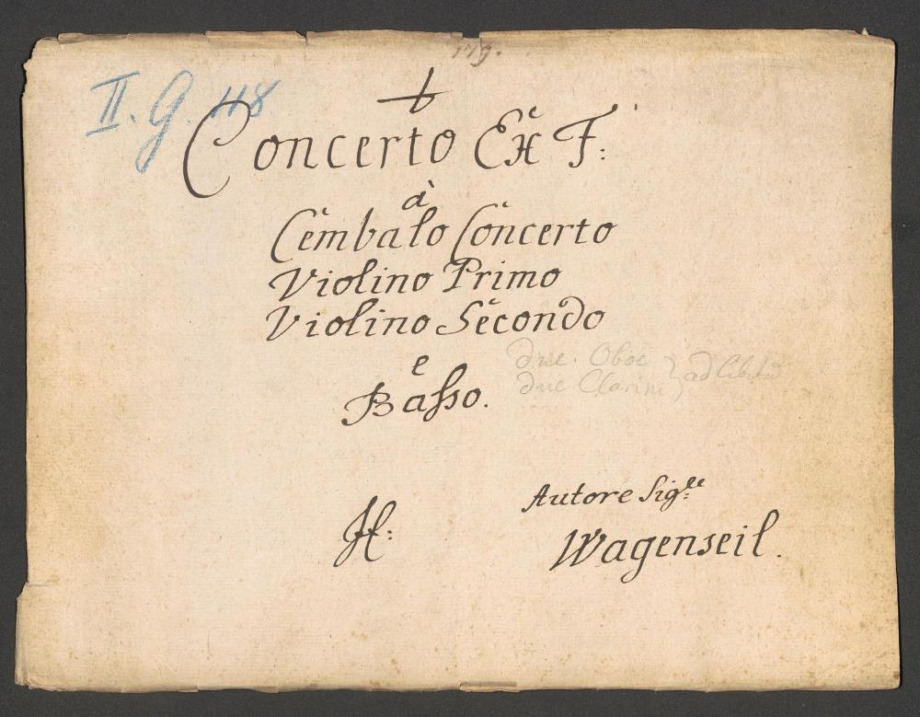 179.
II. G. 118
Concerto Ex F:
à
Cembalo Concerto
Violino Primo
Violino Secondo
e
Basso.
due Oboe
due Clarini } ad libit
Autore Sig:re
H:
Wagenseil.